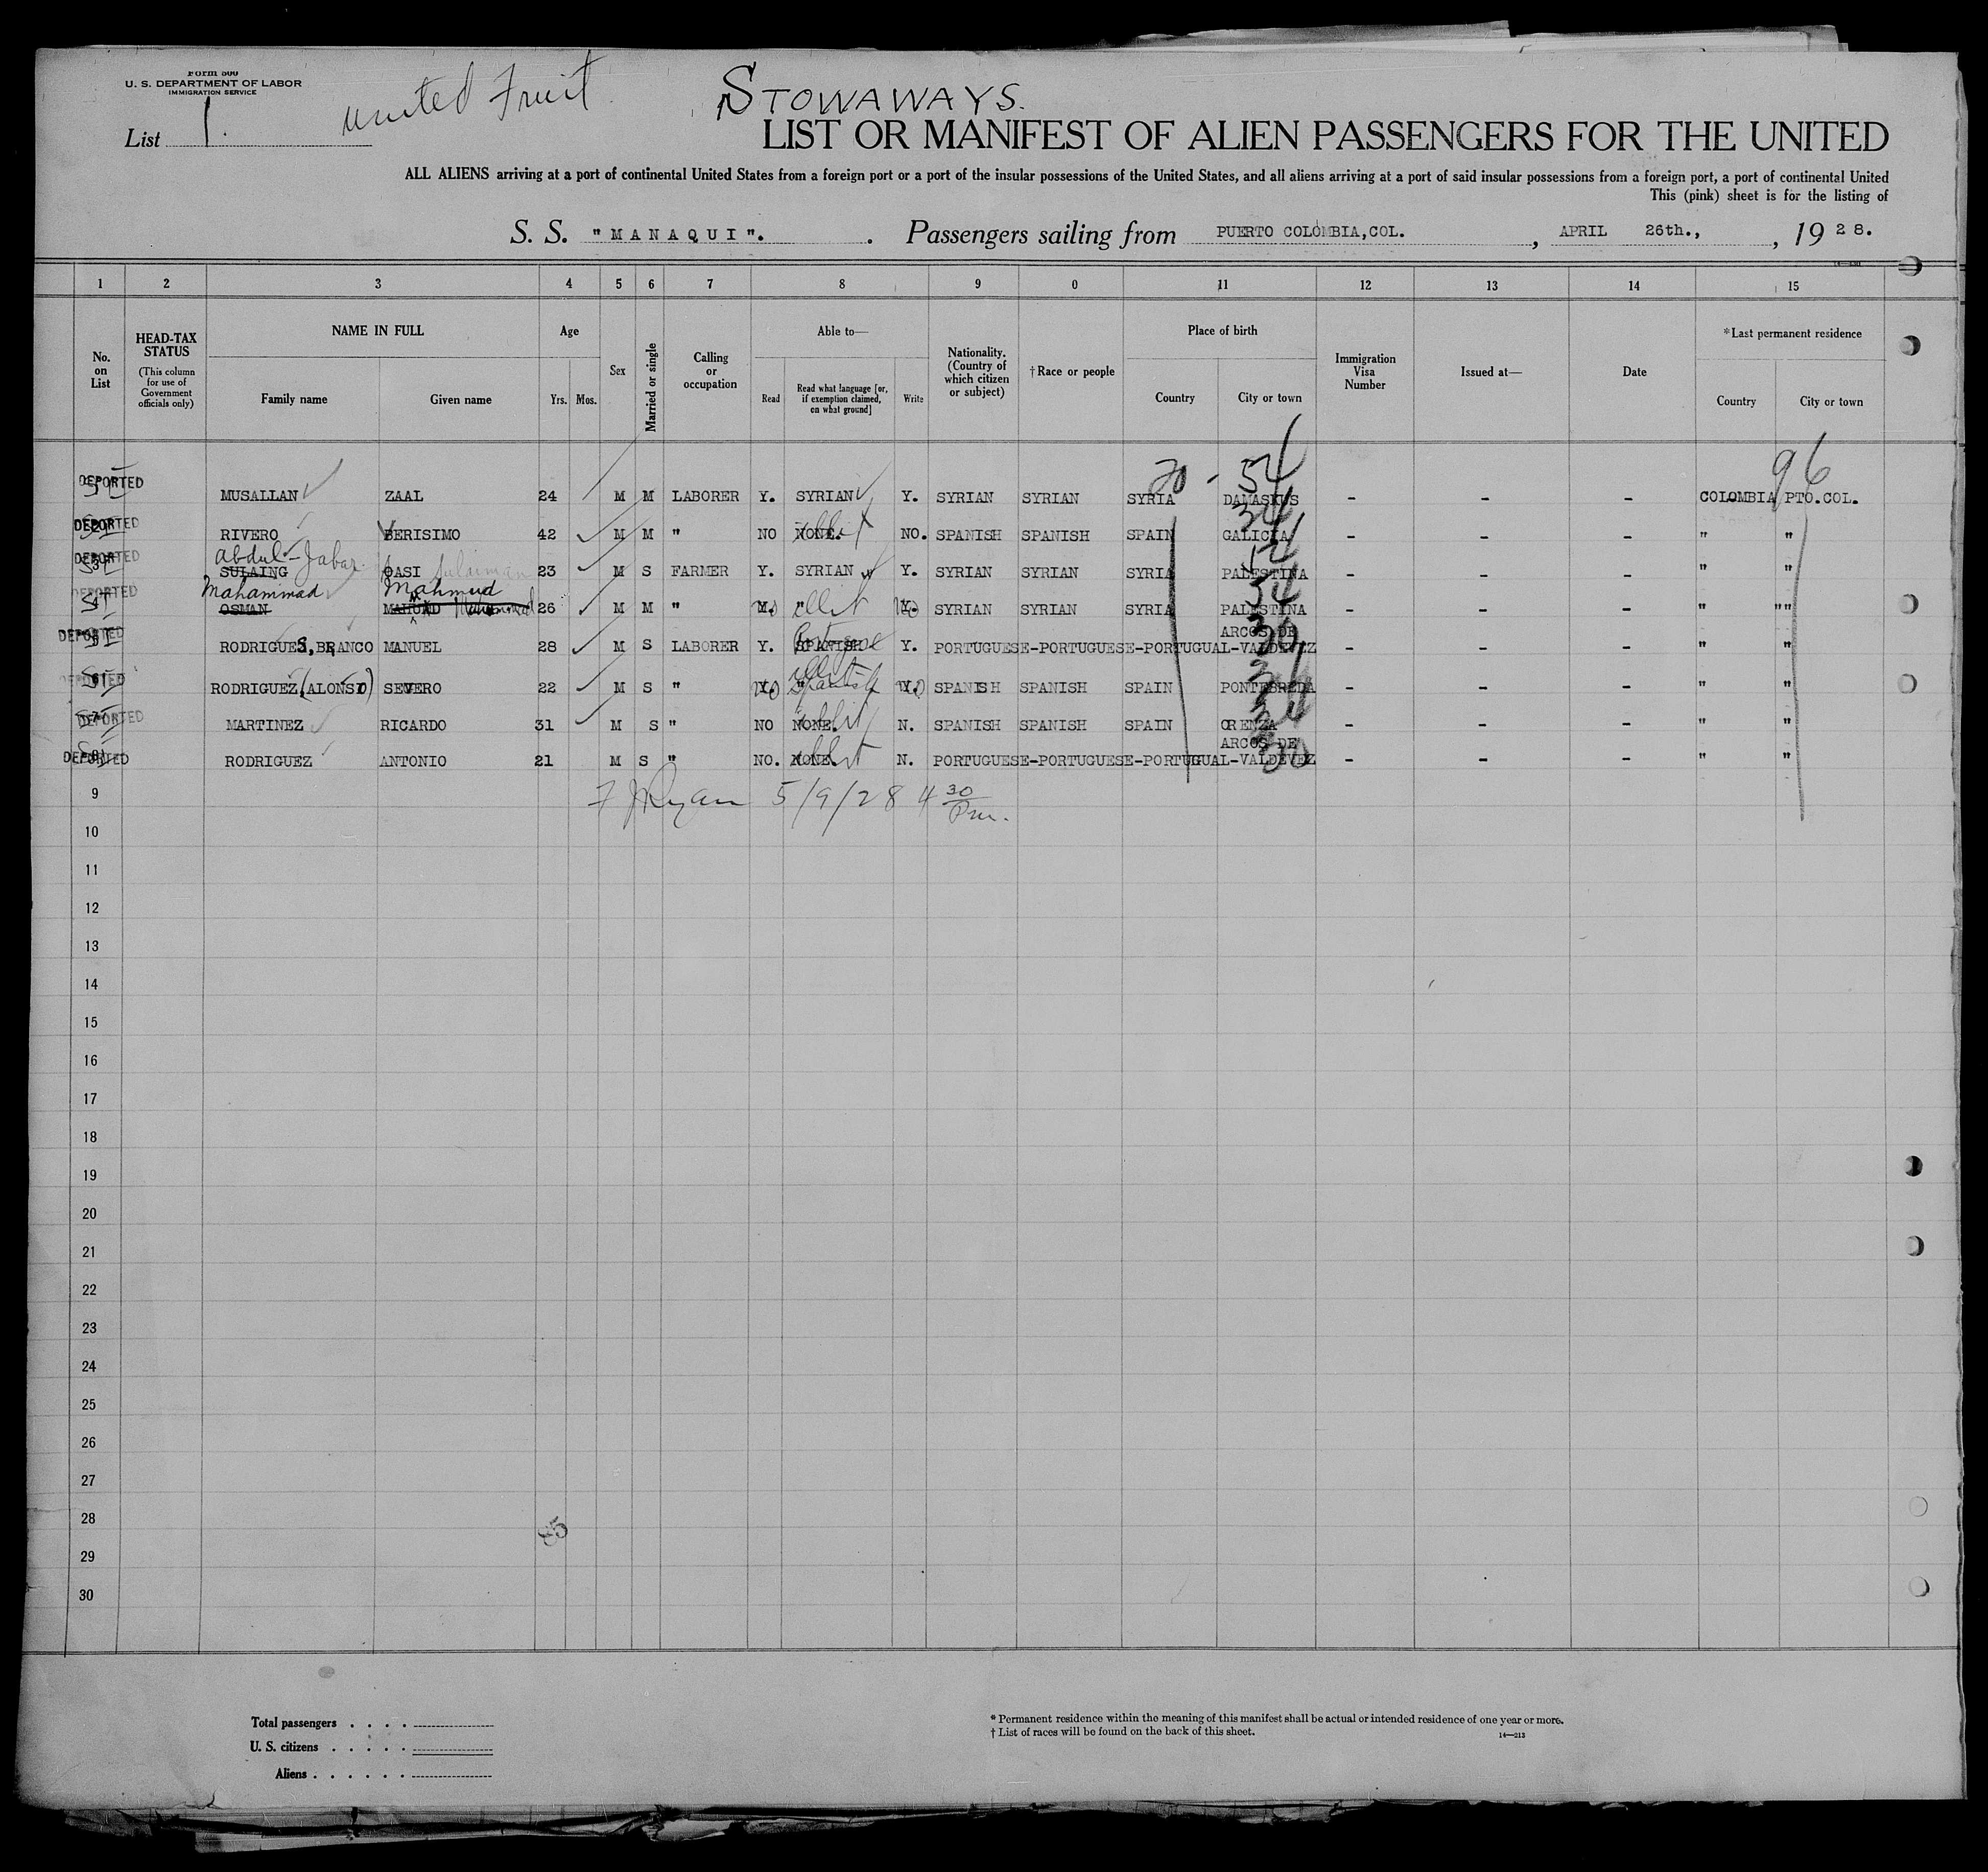 Form 500
U. S. DEPARTMENT OF LABOR
IMMIGRATION SERVICE
List 1.
United Fruit
STOWAWAYS.
LIST OR MANIFEST OF ALIEN PASSENGERS FOR THE UNITED
ALL ALIENS arriving at a port of continental United States from a foreign port or a port of the insular possessions of the United States, and all aliens arriving at a port of said insular possessions from a foreign port, a port of continental United
This (pink) sheet is for the listing of
S. S. "MANAQUI". Passengers sailing from PUERTO COLOMBIA,COL. , APRIL 26th., , 1928.
1 2 3 4 5 6 7 8 9 0 11 12 13 14 15
No. on List
HEAD-TAX STATUS
(This column for use of Government officials only)
NAME IN FULL
Family name Given name
Age
Yrs. Mos.
Sex
Married or single
Calling or occupation
Able to—
Read
Read what language [or, if exemption claimed, on what ground]
Write
Nationality. (Country of which citizen or subject)
†Race or people
Place of birth
Country City or town
Immigration Visa Number
Issued at—
Date
*Last permanent residence
Country City or town
20 - 54 96
DEPORTED MUSALLAN ZAAL 24 M M LABORER Y. SYRIAN Y. SYRIAN SYRIAN SYRIA DAMASKUS - - - COLOMBIA PTO.COL.
34
DEPORTED RIVERO BERISIMO 42 M M " NO NONE. illit NO. SPANISH SPANISH SPAIN GALICIA - - - " "
abdul-Jabar 54
DEPORTED SULAING QASI Sulaiman 23 M S FARMER Y. SYRIAN Y. SYRIAN SYRIAN SYRIA PALESTINA - - - " "
Mahammad Mahmud 54
DEPORTED OSMAN 26 M M " Y. no " illit Y. no SYRIAN SYRIAN SYRIA PALESTINA - - - " ""
ARCOS DE 30
DEPORTED RODRIGUES, BRANCO MANUEL 28 M S LABORER Y. SPANISH Portugese Y. PORTUGUESE-PORTUGUESE-PORTUGUAL-VALDEVEZ - - - " "
illit 34
DEPORTED RODRIGUEZ (ALONSO) SEVERO 22 M S " Y. no Spanish Y. no SPANISH SPANISH SPAIN PONTEBREDA - - - " "
34
DEPORTED MARTINEZ RICARDO 31 M S " NO NONE. illit N. SPANISH SPANISH SPAIN ORENZA - - - " "
ARCOS DE 30
DEPORTED RODRIGUEZ ANTONIO 21 M S " NO. NONE. illit N. PORTUGUESE-PORTUGUESE-PORTUGUAL-VALDEVEZ - - - " "
9 F J Ryan 5/9/28 4 30 Pm.
10
11
12
13
14
15
16
17
18
19
20
21
22
23
24
25
26
27
28
85
29
30
Total passengers . . . .
U. S. citizens . . . . .
Aliens . . . . . .
* Permanent residence within the meaning of this manifest shall be actual or intended residence of one year or more.
† List of races will be found on the back of this sheet.
14—213